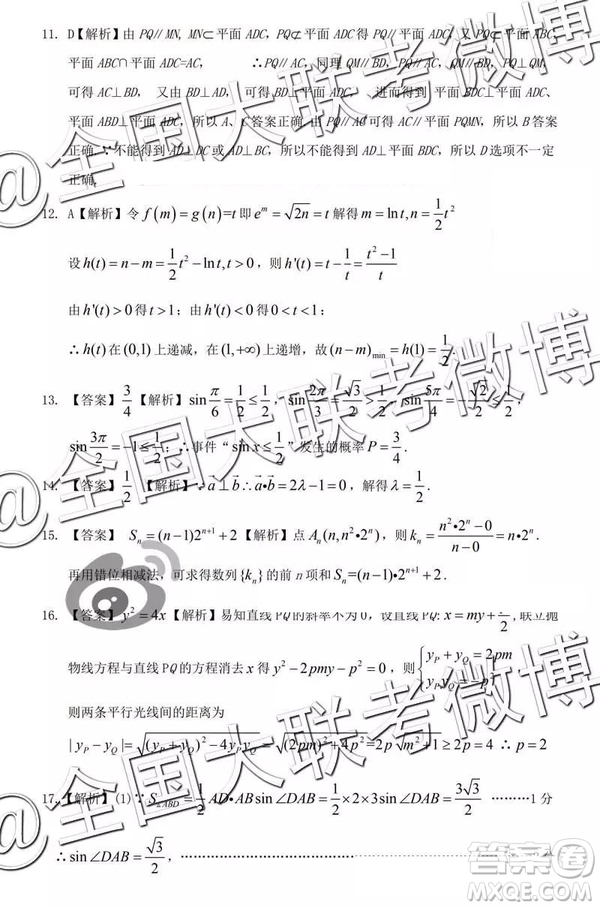 11. D【解析】由 PQ∥MN, MN⊂平面 ADC, PQ⊄平面 ADC 得 PQ∥平面 ADC, 又 PQ⊂平面 ABC,
平面 ABC∩平面 ADC=AC, ∴PQ∥AC, 同理 QM∥BD, PQ∥AC, QM∥BD, PQ⊥QM,
可得 AC⊥BD, 又由 BD⊥AD, 可得 BD⊥平面 ADC, 进而得到 平面 BDC⊥平面 ADC,
平面 ABD⊥平面 ADC, 所以 A、C 答案正确. 由 PQ∥AC 可得 AC∥平面 PQMN, 所以 B 答案
正确. ∵不能得到 AD⊥DC 或 AD⊥BC, 所以不能得到 AD⊥平面 BDC, 所以 D 选项不一定
正确.
12. A【解析】令 f(m)=g(n)=t 即 e^m=√(2n)=t 解得 m=ln t, n=1/2 t²
设 h(t)=n−m=1/2 t²−ln t, t>0, 则 h'(t)=t−1/t=(t²−1)/t
由 h'(t)>0 得 t>1; 由 h'(t)<0 得 0<t<1;
∴h(t) 在 (0,1) 上递减, 在 (1,+∞) 上递增, 故 (n−m)min=h(1)=1/2.
13. 【答案】3/4【解析】sin π/6=1/2≤1/2, sin 2π/3=√3/2>1/2, sin 5π/4=−√2/2≤1/2,
sin 3π/2=−1≤1/2; ∴事件“sin x≤1/2”发生的概率 P=3/4.
14. 【答案】1/2【解析】∵a⊥b∴a•b=2λ−1=0, 解得 λ=1/2.
15. 【答案】Sn=(n−1)2^(n+1)+2【解析】点 An(n, n²•2^n), 则 kn=(n²•2^n−0)/(n−0)=n•2^n.
再用错位相减法, 可求得数列{kn}的前 n 项和 Sn=(n−1)•2^(n+1)+2.
16. 【答案】y²=4x【解析】易知直线 PQ 的斜率不为 0, 设直线 PQ: x=my+p/2, 联立抛
物线方程与直线 PQ 的方程消去 x 得 y²−2pmy−p²=0, 则{yP+yQ=2pm
则两条平行光线间的距离为
|yP−yQ|=√((yP+yQ)²−4yPyQ)=√((2pm)²+4p²)=2p√(m²+1)≥2p ∴p=2
17. 【解析】(1)∵S△ABD=1/2 AD•AB sin∠DAB=1/2×2×3sin∠DAB=3√3/2 ………1分
∴sin∠DAB=√3/2,
@全国大联考微博
@全国大联考微博
@全国大联考微博
答案圈
MXQE.COM